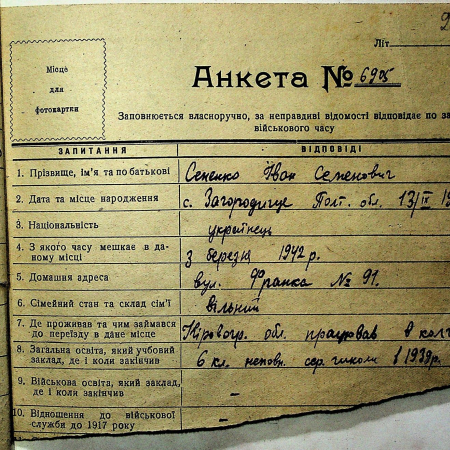 Місце
для
фотокартки
Літ.
Анкета № 6905
Заповнюється власноручно, за неправдиві відомості відповідає по за
військового часу
ЗАПИТАННЯ ВІДПОВІДІ
1. Прізвище, ім'я та по батькові Сененко Іван Семенович
2. Дата та місце народження с. Загородище Полт. обл. 13/IX 19
3. Національність українець
4. З якого часу мешкає в да-
ному місці з березня 1942 р.
5. Домашня адреса вул. Франка № 91.
6. Сімейний стан та склад сім'ї вільний
7. Де проживав та чим займався
до переїзду в дане місце Кіровогр. обл. працював в кол
8. Загальна освіта, який учбовий
заклад, де і коли закінчив 6 кл. неповн. сер. школи в 1939р.
9. Військова освіта, який заклад,
де і коли закінчив –
10. Відношення до військової
служби до 1917 року –